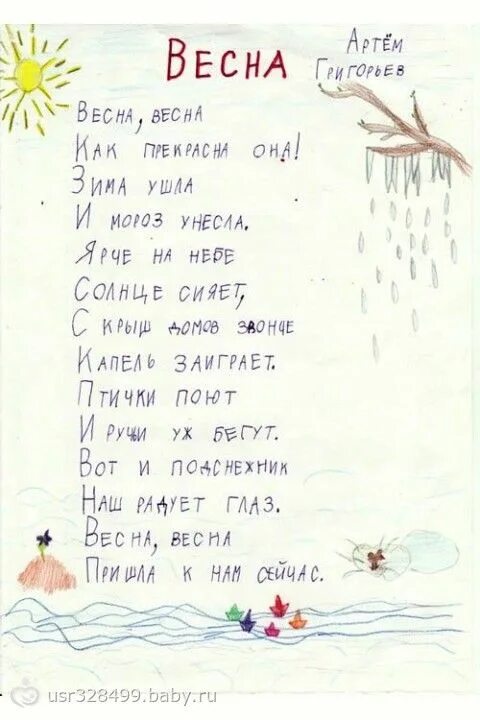 Весна
Артём
Григорьев
Весна, весна
Как прекрасна она!
Зима ушла
И мороз унесла.
Ярче на небе
Солнце сияет,
С крыш домов звонче
Капель заиграет.
Птички поют
И ручьи уж бегут.
Вот и подснежник
Наш радует глаз.
Весна, весна
Пришла к нам сейчас.
usr328499.baby.ru